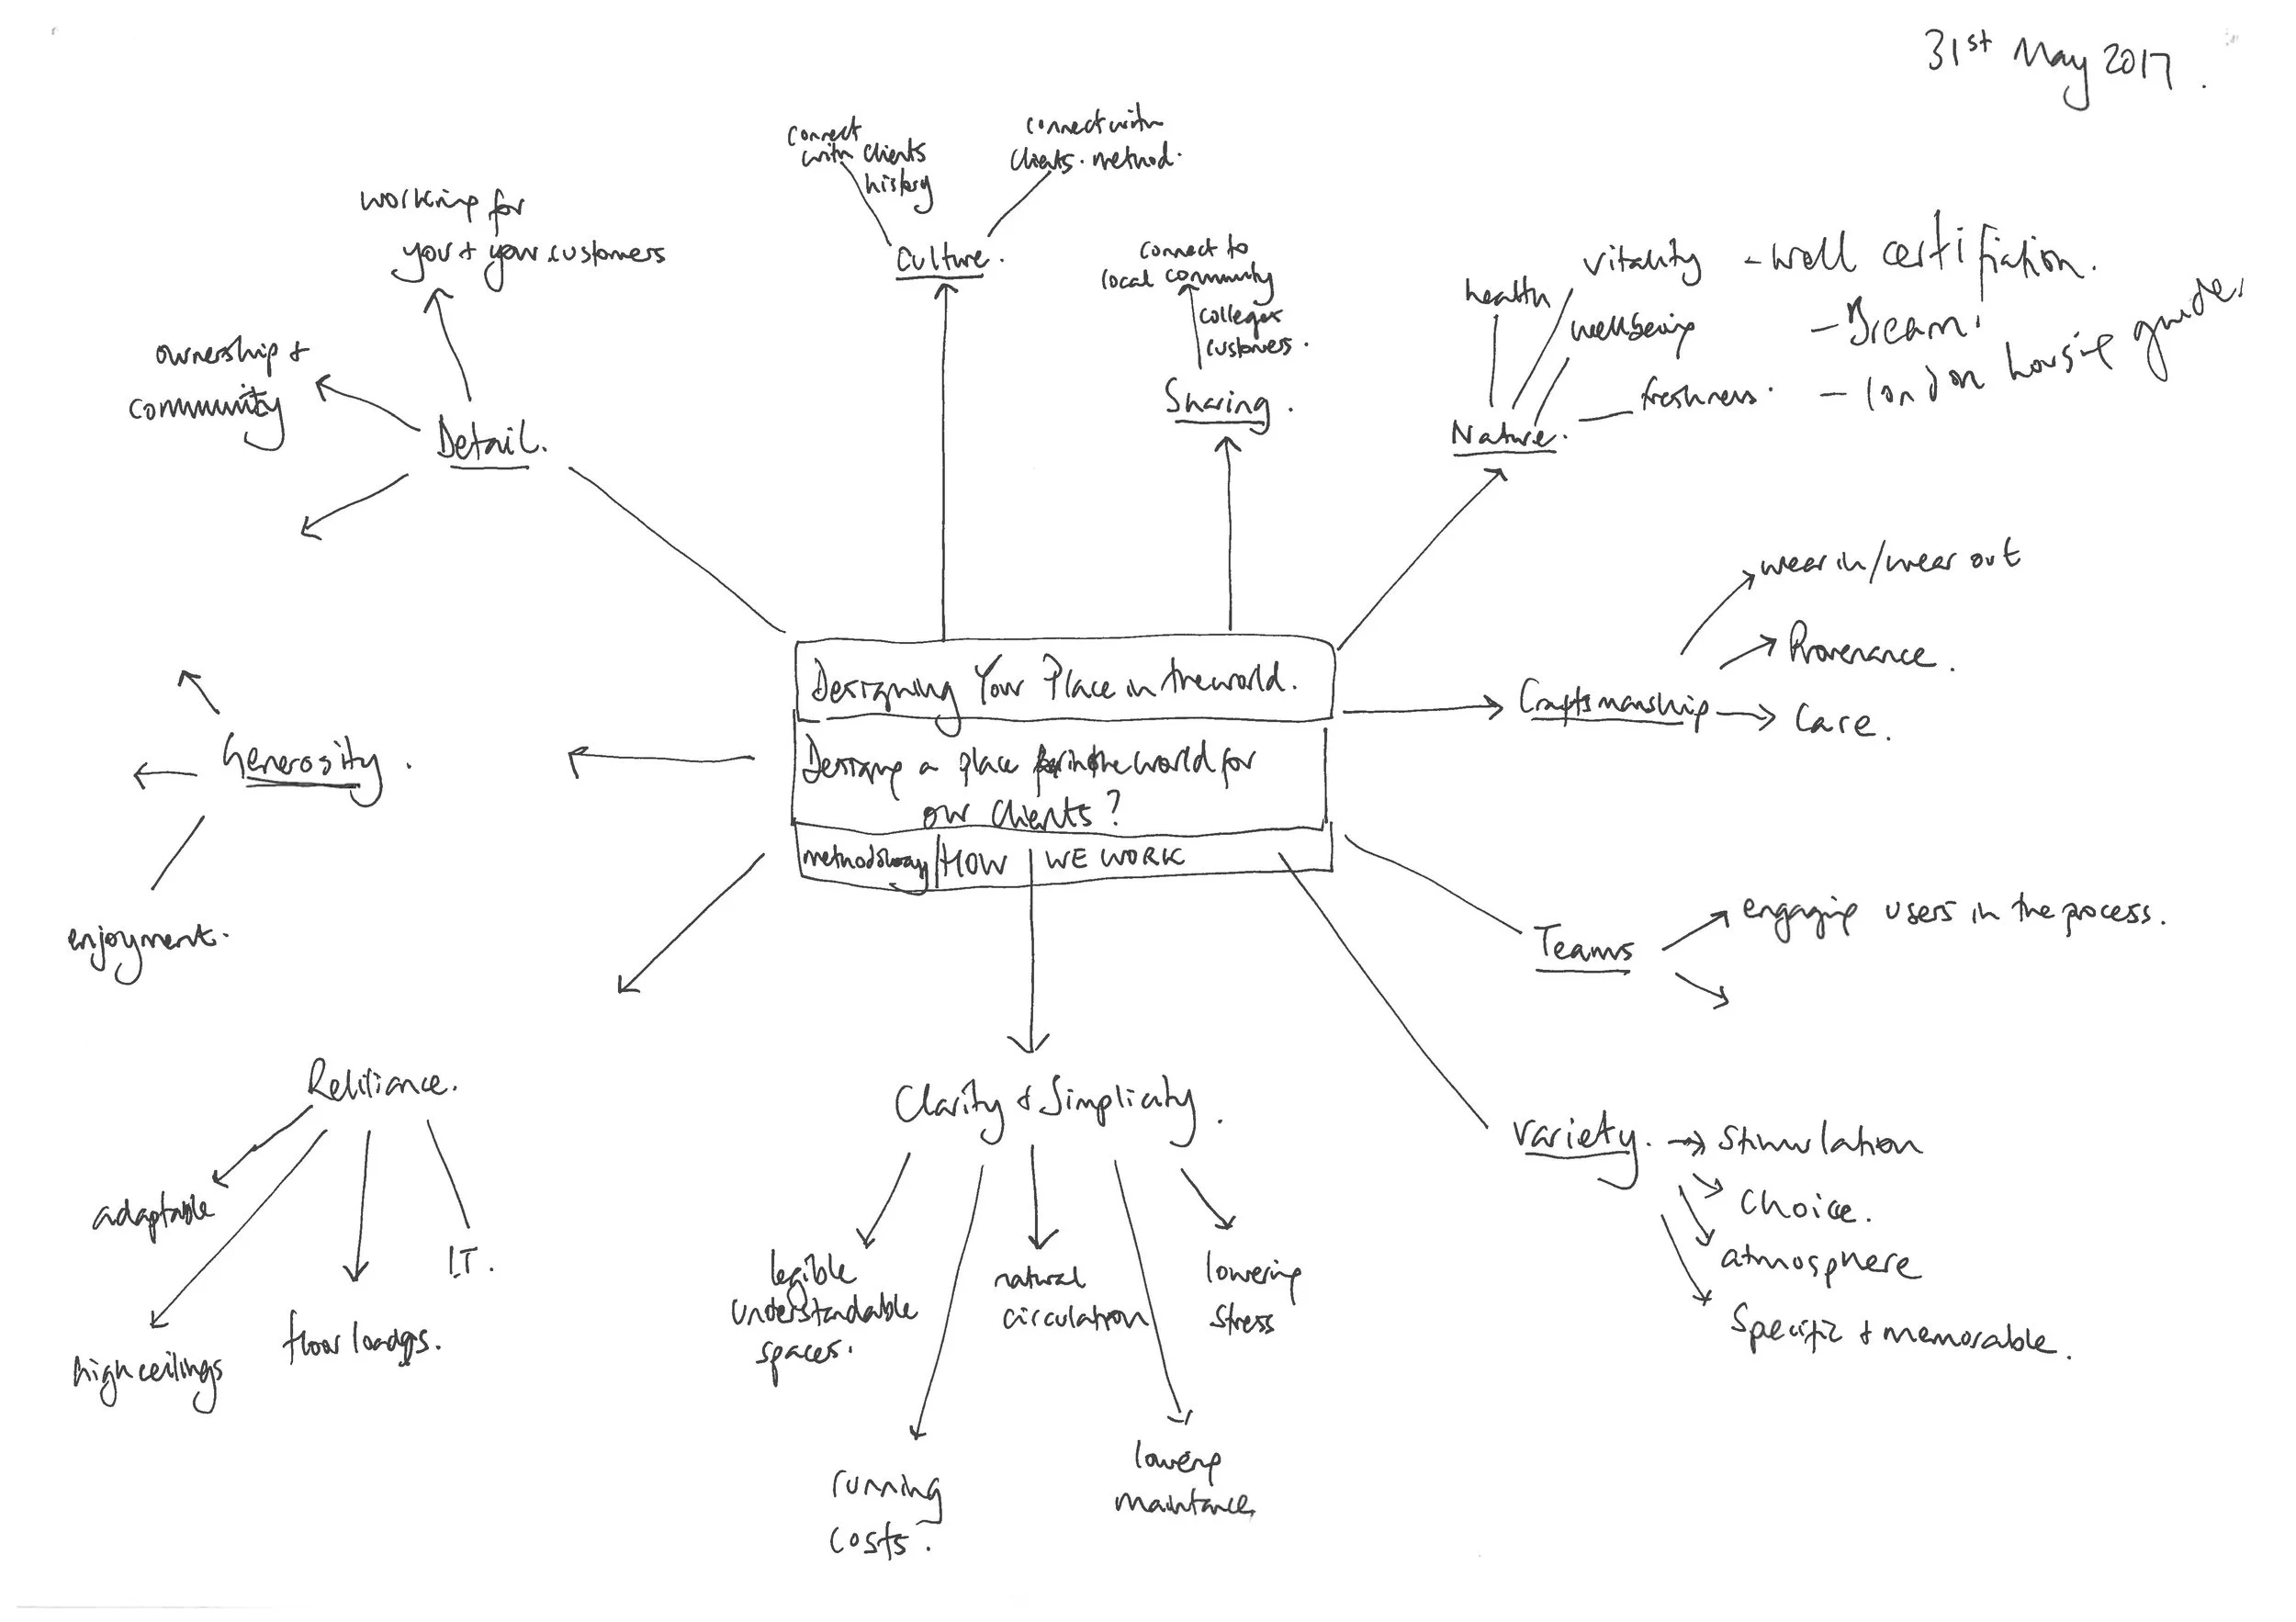 31st May 2017.
connect
with clients
history
connect with
clients. method.
Culture.
working for
you + your customers
ownership +
community
Detail.
connect to
local community
colleges
customers.
Sharing.
health
vitality - well certifiation.
wellbeing
- Bream!
freshness.
- london housing guide.
Nature.
wear in/wear out
Provenance.
Craftsmanship
Care.
Designing Your Place in the world.
Designing a place in the world for
our clients?
methodology HOW WE WORK
Generosity.
enjoyment.
Teams
engaging users in the process.
Reliliance.
adaptable
high ceilings
floor loadgs.
I.T.
Clarity & Simplicity.
legible
understandable
spaces.
running
costs.
natural
circulation
lowering
maintance
lowering
stress
Variety.
Stimulation
Choice.
atmosphere
Specific + memorable.